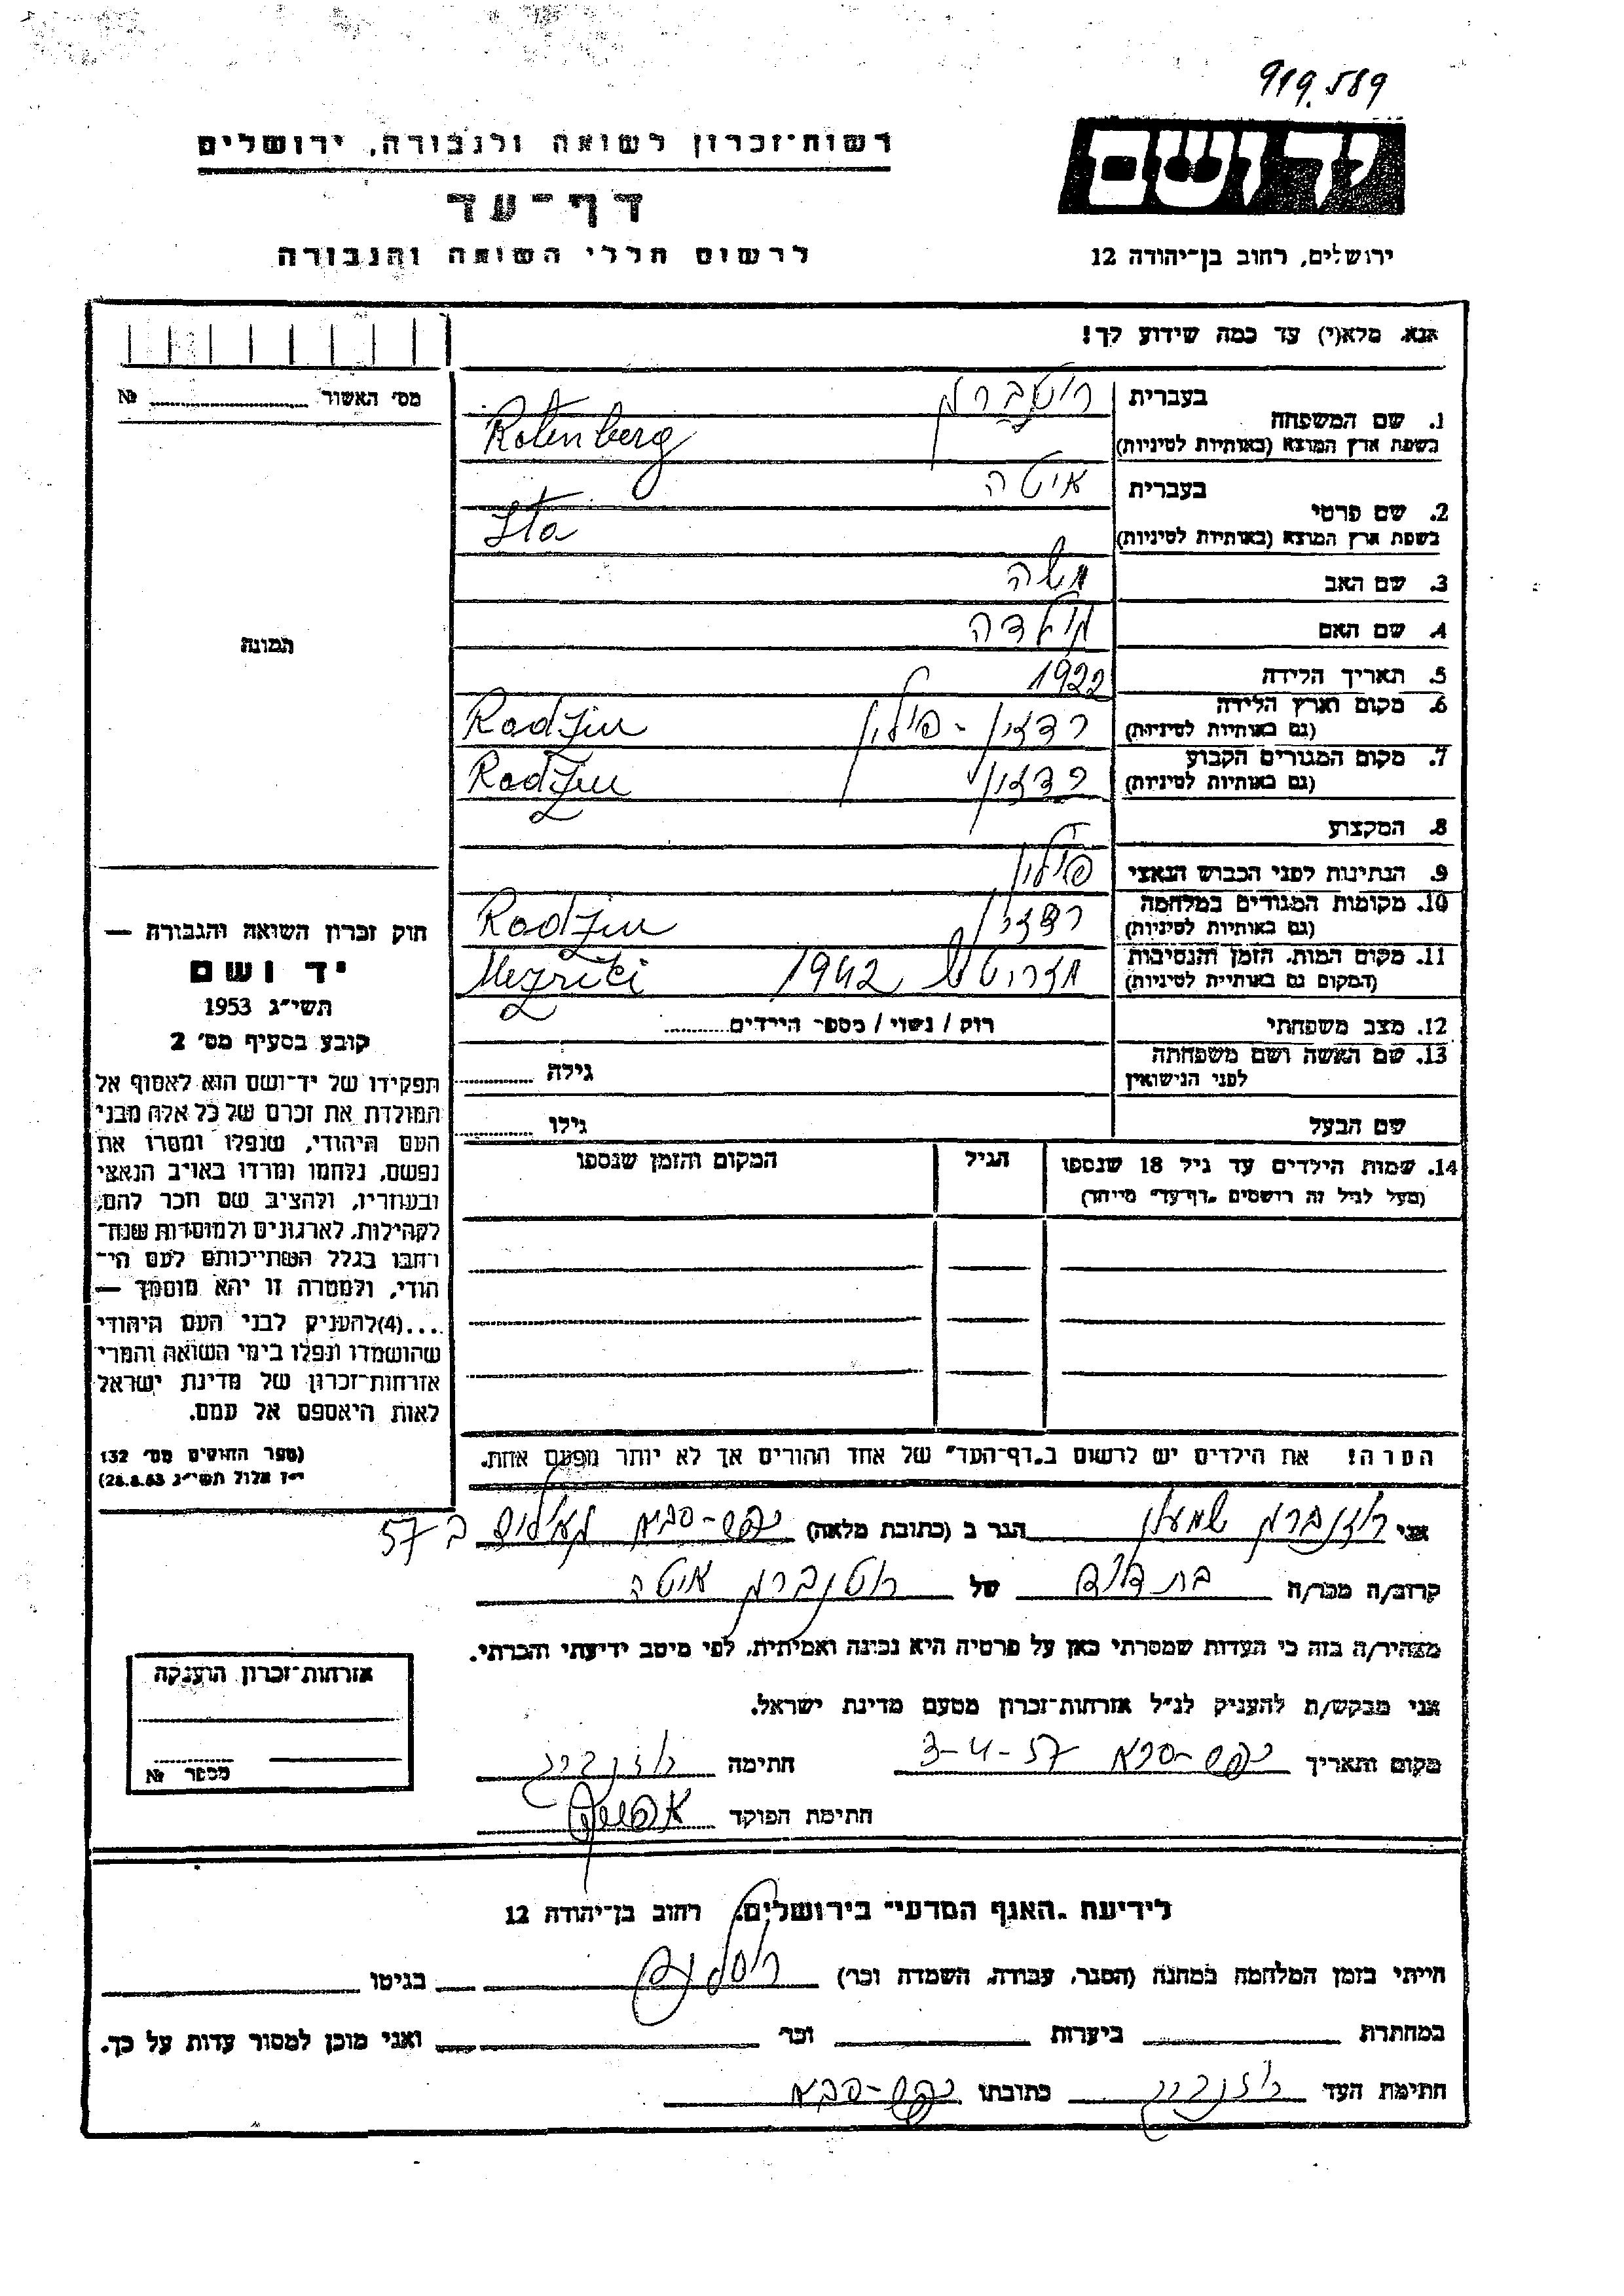 919.589
יד ושם
רשות־זכרון לשואה ולגבורה, ירושלים
דף־עד
לרשום חללי השואה והגבורה
ירושלים, רחוב בן־יהודה 12
אנא, מלא(י) עד כמה שידוע לך!
מס׳ האשור № 
1. שם המשפחה
בעברית רוטנברג
בשפת ארץ המוצא (באותיות לטיניות) Rotenberg
2. שם פרטי
בעברית איטה
בשפת ארץ המוצא (באותיות לטיניות) Ita
3. שם האב משה
4. שם האם
5. תאריך הלידה 1922
6. מקום וארץ הלידה (גם באותיות לטיניות) רדזין - פולין Radzin
7. מקום המגורים הקבוע (גם באותיות לטיניות) רדזין Radzin
8. המקצוע
9. הנתינות לפני הכבוש הנאצי פולין
10. מקומות המגורים במלחמה (גם באותיות לטיניות) רדזין Radzin
11. מקום המות, הזמן והנסיבות (המקום גם באותיות לטיניות) 1942 Mezriti
12. מצב משפחתי רוק / נשוי / מספר הילדים
13. שם האשה ושם משפחתה לפני הנישואין גילה
שם הבעל גילו
14. שמות הילדים עד גיל 18 שנספו הגיל המקום והזמן שנספו
(מעל לגיל זה רושמים „דף־עד״ מיוחד)
תמונה
חוק זכרון השואה והגבורה —
יד ושם
תשי״ג 1953
קובע בסעיף מס׳ 2
תפקידו של יד־ושם הוא לאסוף אל
המולדת את זכרם של כל אלה מבני
העם היהודי, שנפלו ומסרו את
נפשם, נלחמו ומרדו באויב הנאצי
ובעוזריו, ולהציב שם וזכר להם,
לקהילות, לארגונים ולמוסדות שנח־
רבו בגלל השתייכותם לעם הי־
הודי, ולמטרה זו יהא מוסמך —
....(4)להעניק לבני העם היהודי
שהושמדו ונפלו בימי השואה והמרי
אזרחות־זכרון של מדינת ישראל
לאות היאספם אל עמם.
(ספר החוקים מס׳ 132
י״ז אלול תשי״ג 28.8.53)
הערה! את הילדים יש לרשום ב„דף־העד״ של אחד ההורים אך לא יותר מפעם אחת.
אני רוזנברג שמעון הגר ב (כתובת מלאה) כפר-סבא ב 57
קרוב/ה מכר/ה בת דוד של רוטנברג איטה
מצהיר/ה בזה כי העדות שמסרתי כאן על פרטיה היא נכונה ואמיתית, לפי מיטב ידיעתי והכרתי.
אני מבקש/ת להעניק לנ״ל אזרחות־זכרון מטעם מדינת ישראל.
מקום ותאריך כפר-סבא 3-4-57 חתימה רוזנברג
חתימת הפוקד
אזרחות־זכרון הוענקה
מספר №
לידיעת „האגף המדעי״ בירושלים, רחוב בן־יהודה 12
הייתי בזמן המלחמה במחנה (הסגר, עבודה, השמדה וכו׳) בגיטו
במחתרת ביערות וכו׳ ואני מוכן למסור עדות על כך.
חתימת העד רוזנברג כתובתו כפר-סבא